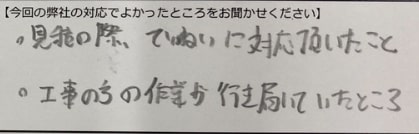 【今回の弊社の対応でよかったところをお聞かせください】
。見積の際、ていねいに対応頂いたこと
。工事の方の作業が行き届いていたところ